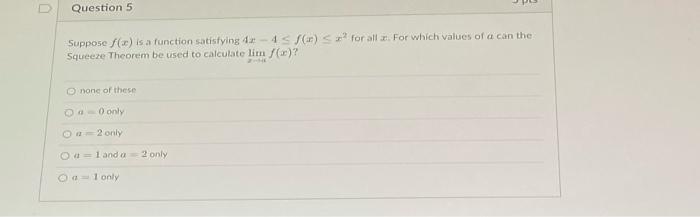 Question 5
Suppose f(x) is a function satisfying 4x − 4 ≤ f(x) ≤ x² for all x. For which values of a can the
Squeeze Theorem be used to calculate lim f(x)?
x→a
none of these
a = 0 only
a = 2 only
a = 1 and a = 2 only
a = 1 only